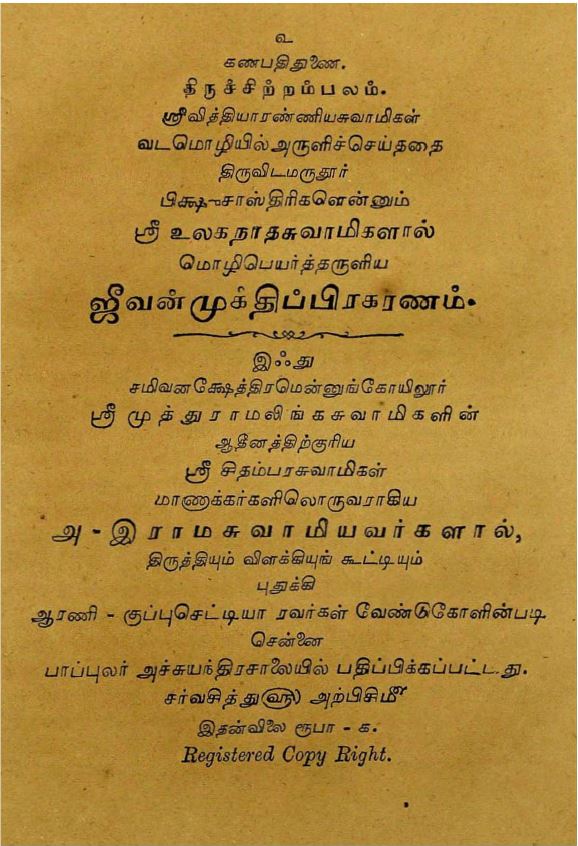 உ
கணபதிதுணை.
திருச்சிற்றம்பலம்.
ஸ்ரீவித்தியாரண்ணியசுவாமிகள்
வடமொழியில்அருளிச்செய்ததை
திருவிடமருதூர்
பிக்ஷுசாஸ்திரிகளென்னும்
ஸ்ரீ உலகநாதசுவாமிகளால்
மொழிபெயர்த்தருளிய
ஜீவன்முக்திப்பிரகரணம்.
இஃது
சமிவனக்ஷேத்திரமென்னுங்கோயிலூர்
ஸ்ரீ முத்துராமலிங்கசுவாமிகளின்
ஆதீனத்திற்குரிய
ஸ்ரீ சிதம்பரசுவாமிகள்
மாணாக்கர்களிலொருவராகிய
அ - இராமசுவாமியவர்களால்,
திருத்தியும் விளக்கியுங் கூட்டியும்
புதுக்கி
ஆரணி - குப்புசெட்டியா ரவர்கள் வேண்டுகோளின்படி
சென்னை
பாப்புலர் அச்சுயந்திரசாலையில் பதிப்பிக்கப்பட்டது.
சர்வசித்து௵ அற்பிசி௴
இதன்விலை ரூபா - க.
Registered Copy Right.